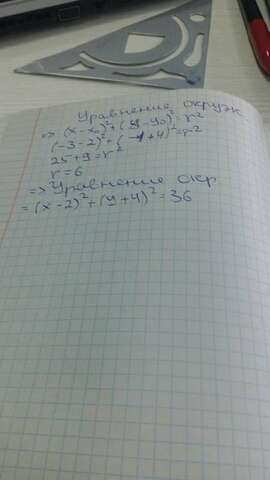 Уравнение окруж
=> (x-x₀)²+(y-y₀)²=r²
(-3-2)²+(-1+4)²=r²
25+9=r²
r=6
=> Уравнение окр
=(x-2)²+(y+4)²=36